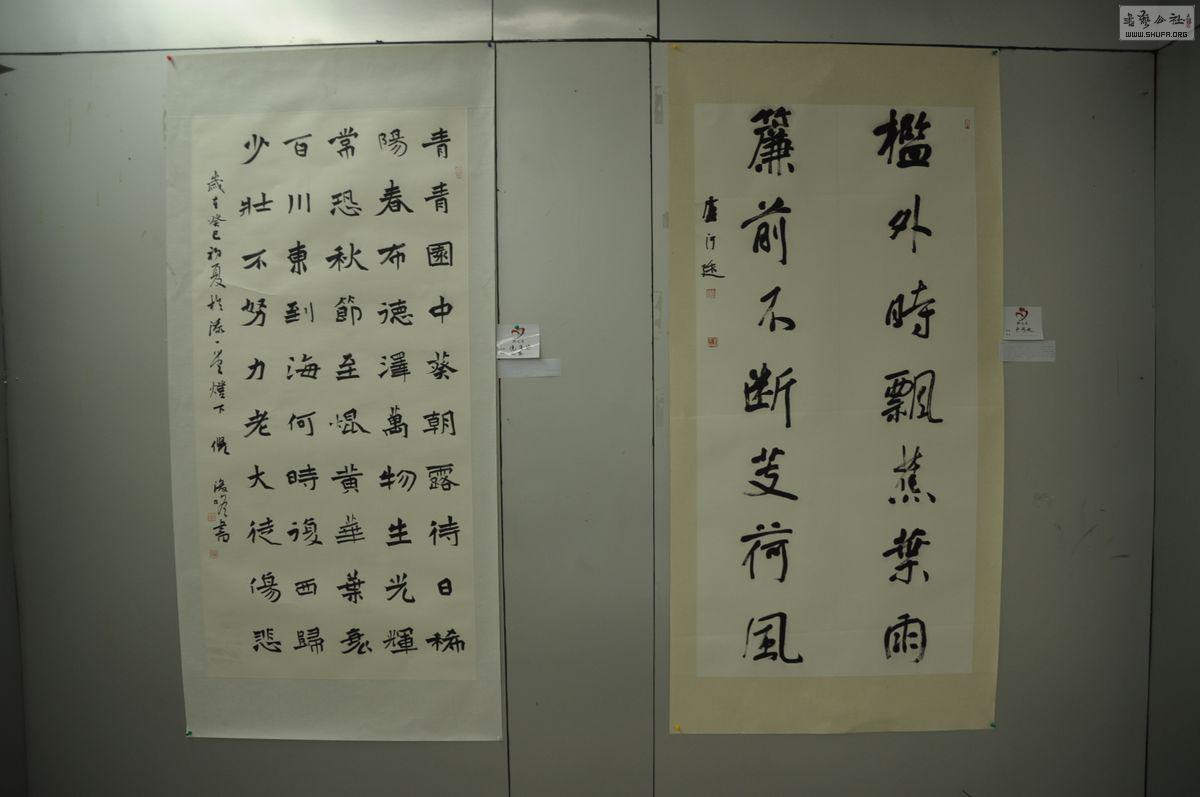 青青園中葵朝露待日稀
陽春布德澤萬物生光輝
常恐秋節至焜黃華葉衰
百川東到海何時復西歸
少壯不努力老大徒傷悲
歲在癸巳初夏於燈下書
檻外時飄蕉葉雨
簾前不断芰荷風
書藝公社
WWW.SHUFA.ORG